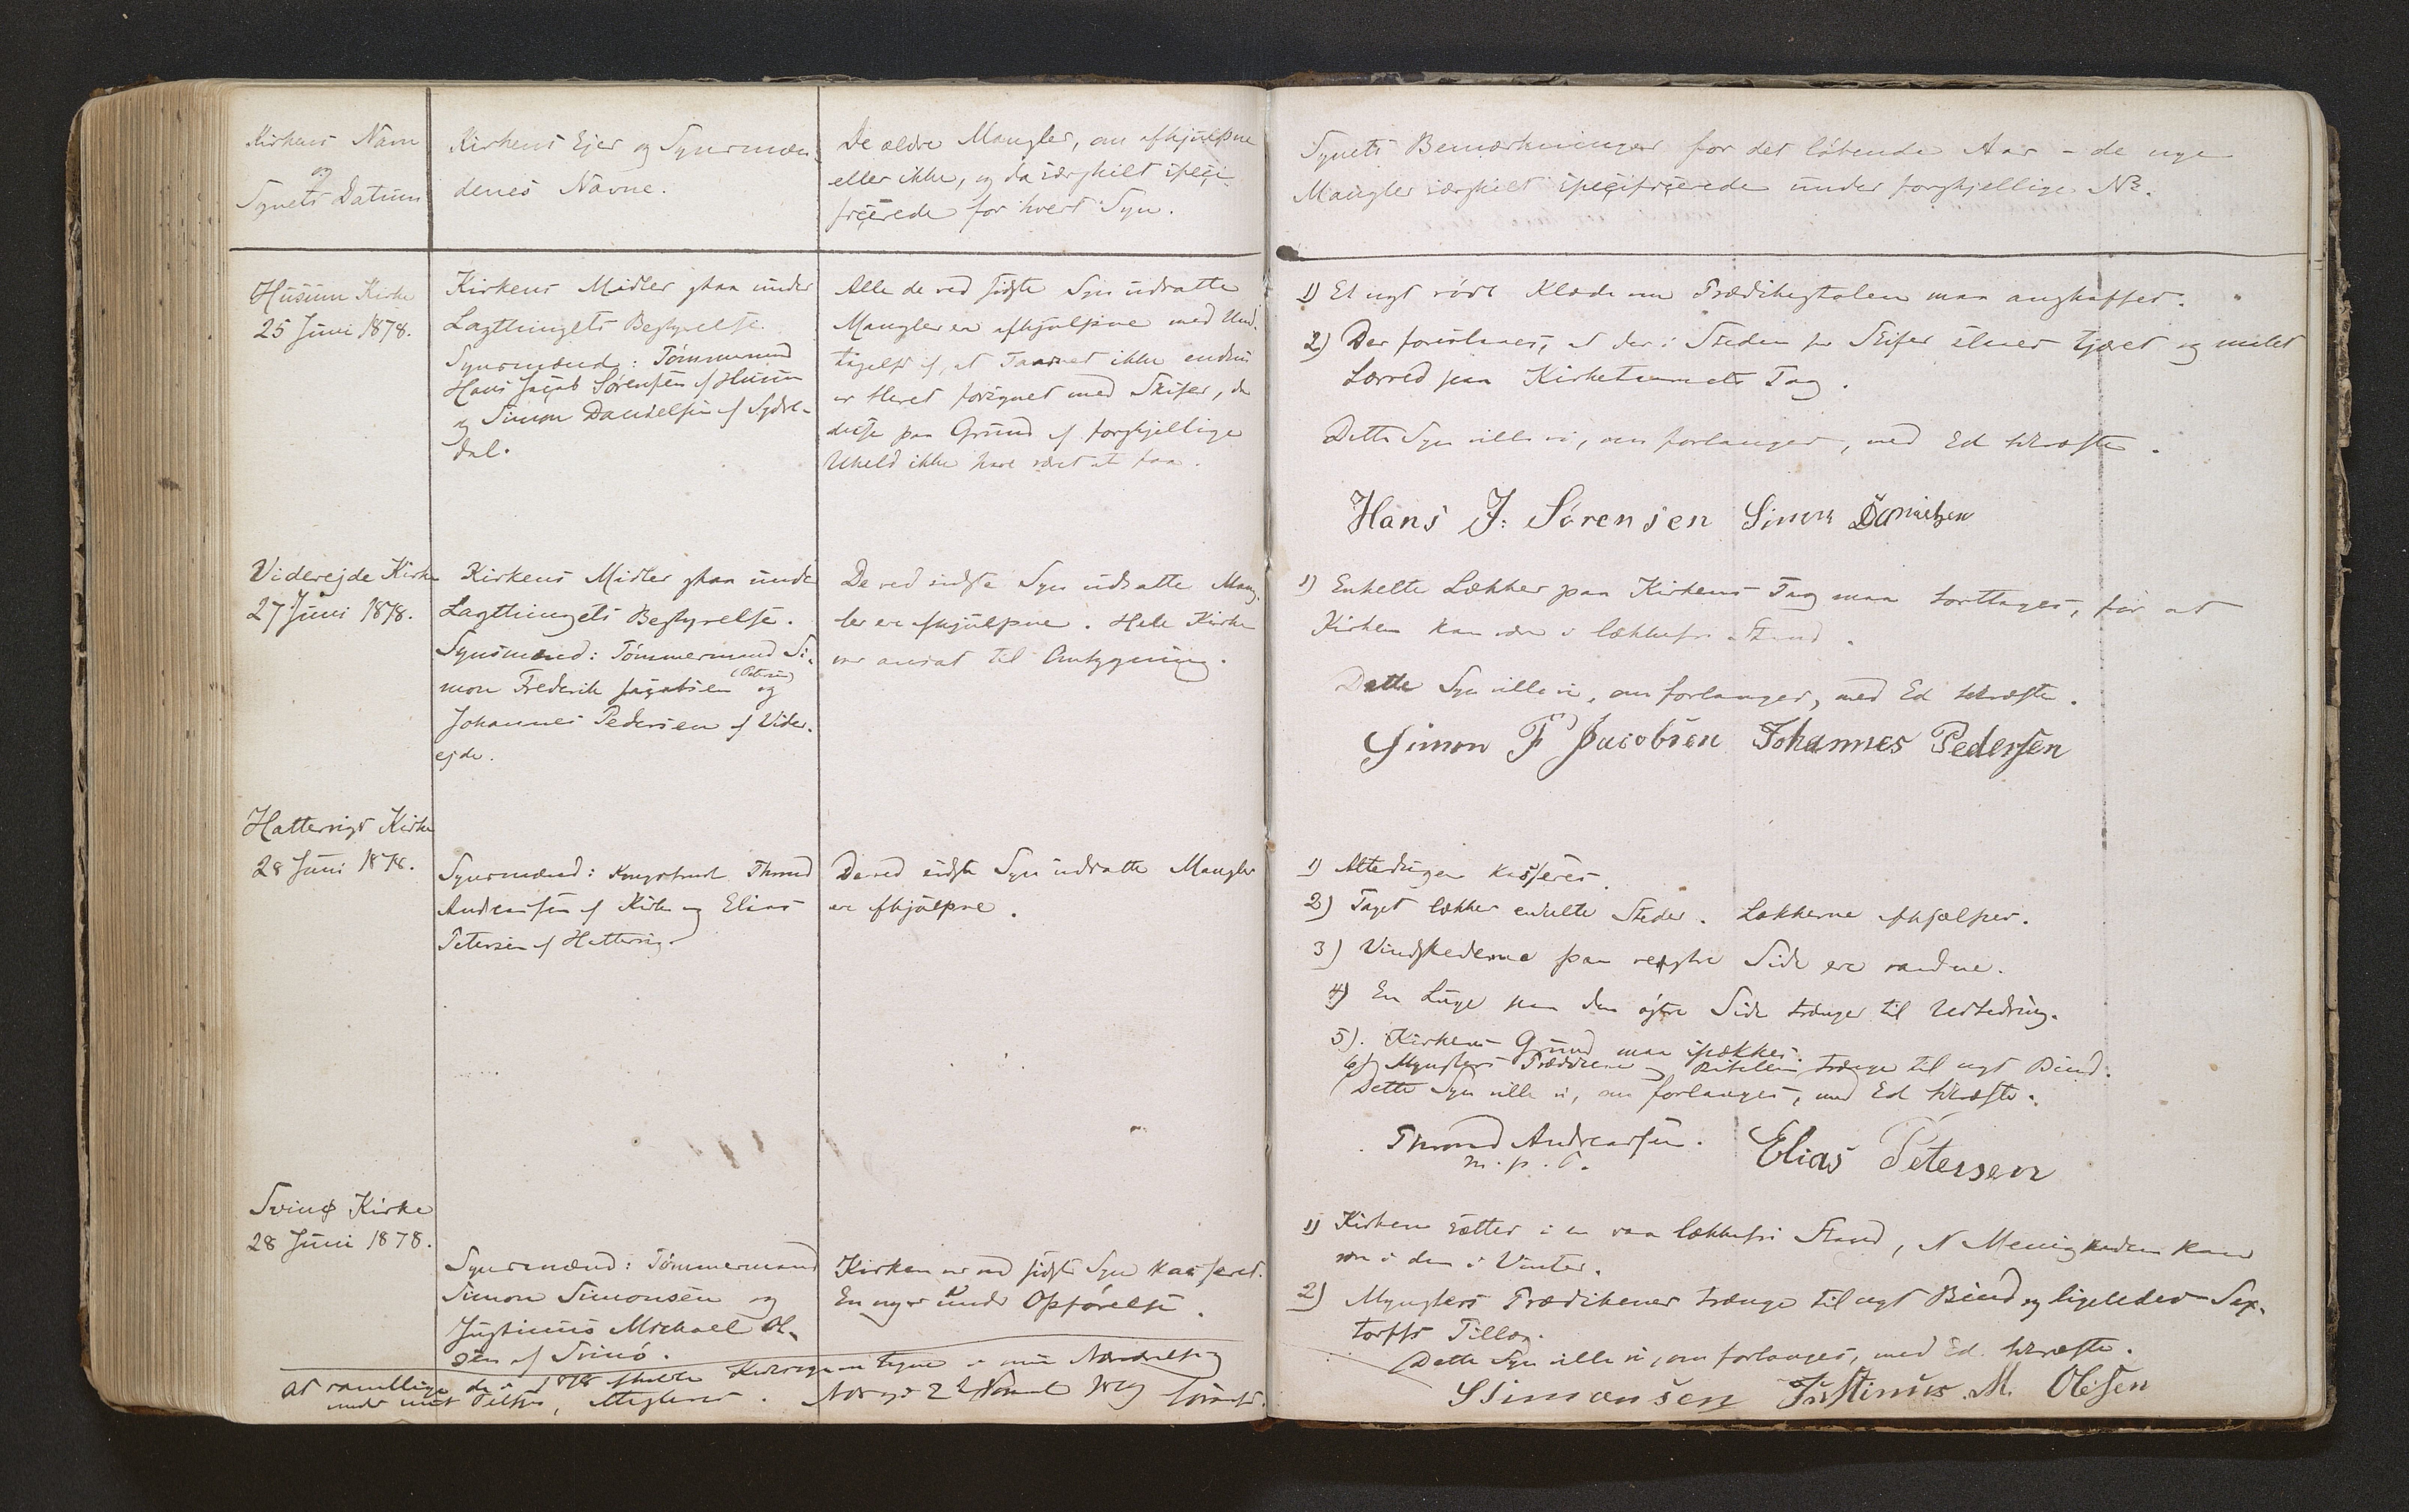 Kirkens Navn
og
Synets Datum
Kirkens Ejer og Synsmæn-
denes Navne.
De ældre Mangler, om afhjulpne
eller ikke, og da særskilt speci-
ficerede for hvert Syn.
Synets Bemærkninger for det løbende Aar - de nye
Mangler særskilt specificerede under forskjellige No.
Husum Kirke
25 Juni 1878.
Kirkens Midler staa under
Lagthingets Bestyrelse.
Synsmænd: Tømmermand
Hans Jacob Sørensen af Husum
og Simon Danielsen af Sydre-
dal.
Alle de ved sidste Syn udsatte
Mangler er afhjulpne med Und-
tagelse af, at Taarnet ikke endnu
er blevet forsynet med Skifer, da
disse paa Grund af forskjellige
Uheld ikke have været at faa.
1) Et nyt rødt Klæde om Prædikestolen maa anskaffes.
2) Der foreslaaes, at der i Steden for Skifer slaaes tjæret og malet
Lærred paa Kirketaarnets Tag.
Dette Syn ville vi, om forlanges, med Ed bekræfte.
Hans J: Sørensen Simon Danielsen
Viderejde Kirke
27 Juni 1878.
Kirkens Midler staa under
Lagthingets Bestyrelse.
Synsmænd: Tømmermand Si-
mon Frederik Jacobsen og
Johannes Pedersen af Vider-
ejde.
De ved sidste Syn udsatte Mang-
ler ere afhjulpne. Hele Kirken
var ansat til Ombygning.
1) Enkelte Lækker paa Kirkens Tag maa borttages, før at
Kirken kan være i lækkefri Stand.
Dette Syn ville vi, om forlanges, med Ed bekræfte.
Simon F Jacobsen Johannes Pedersen
Hattervigs Kirke
28 Juni 1878.
Synsmænd: Kongsbonde Thrond
Andreassen af Kirke og Elias
Petersen af Hattervig.
De ved sidste Syn udsatte Mangler
ere afhjulpne.
1) Alterdugen kasseres.
2) Taget lækker enkelte Steder. Lækkerne afhjælpes.
3) Vindskederne paa vestre Side ere raadne.
4) En Luge paa den østre Side trænger til Udbedring.
5). Kirkens Grund maa spækkes.
6) Mynsters Prædikener og Ritualen trænge til nyt Bind.
Dette Syn ville vi, om forlanges, med Ed bekræfte.
Thrond Andreassen.
m. p. S.
Elias Petersen
Svinø Kirke
28 Juni 1878.
Synsmænd: Tømmermand
Simon Simonsen og
Justinus Michael Ol-
sen af Svinø.
Kirken er ved sidste Syn kasseret.
En ny er under Opførelse.
1) Kirken sættes i en saa lækkefri Stand, at Menigheden kan
være i den i Vinter.
2) Mynsters Prædikener trænge til nyt Bind og ligeledes Sax-
torffs Tillæg.
Dette Syn ville vi, om forlanges, med Ed bekræfte.
SSimonsen Justinus. M. Olesen
At samtlige de i 1878